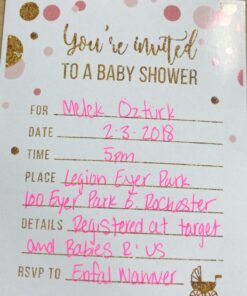 You're invited
TO A BABY SHOWER
FOR Melek Ozturk
DATE 2-3-2018
TIME 5pm
PLACE Legion Eyer Park
100 Eyer Park E. Rochester
DETAILS Registered at target
and Babies R' us
RSVP TO